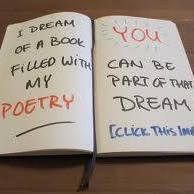 I DREAM
OF A BOOK
FILLED WITH
MY
POETRY
YOU
CAN BE
PART OF THAT
DREAM
[CLICK THIS